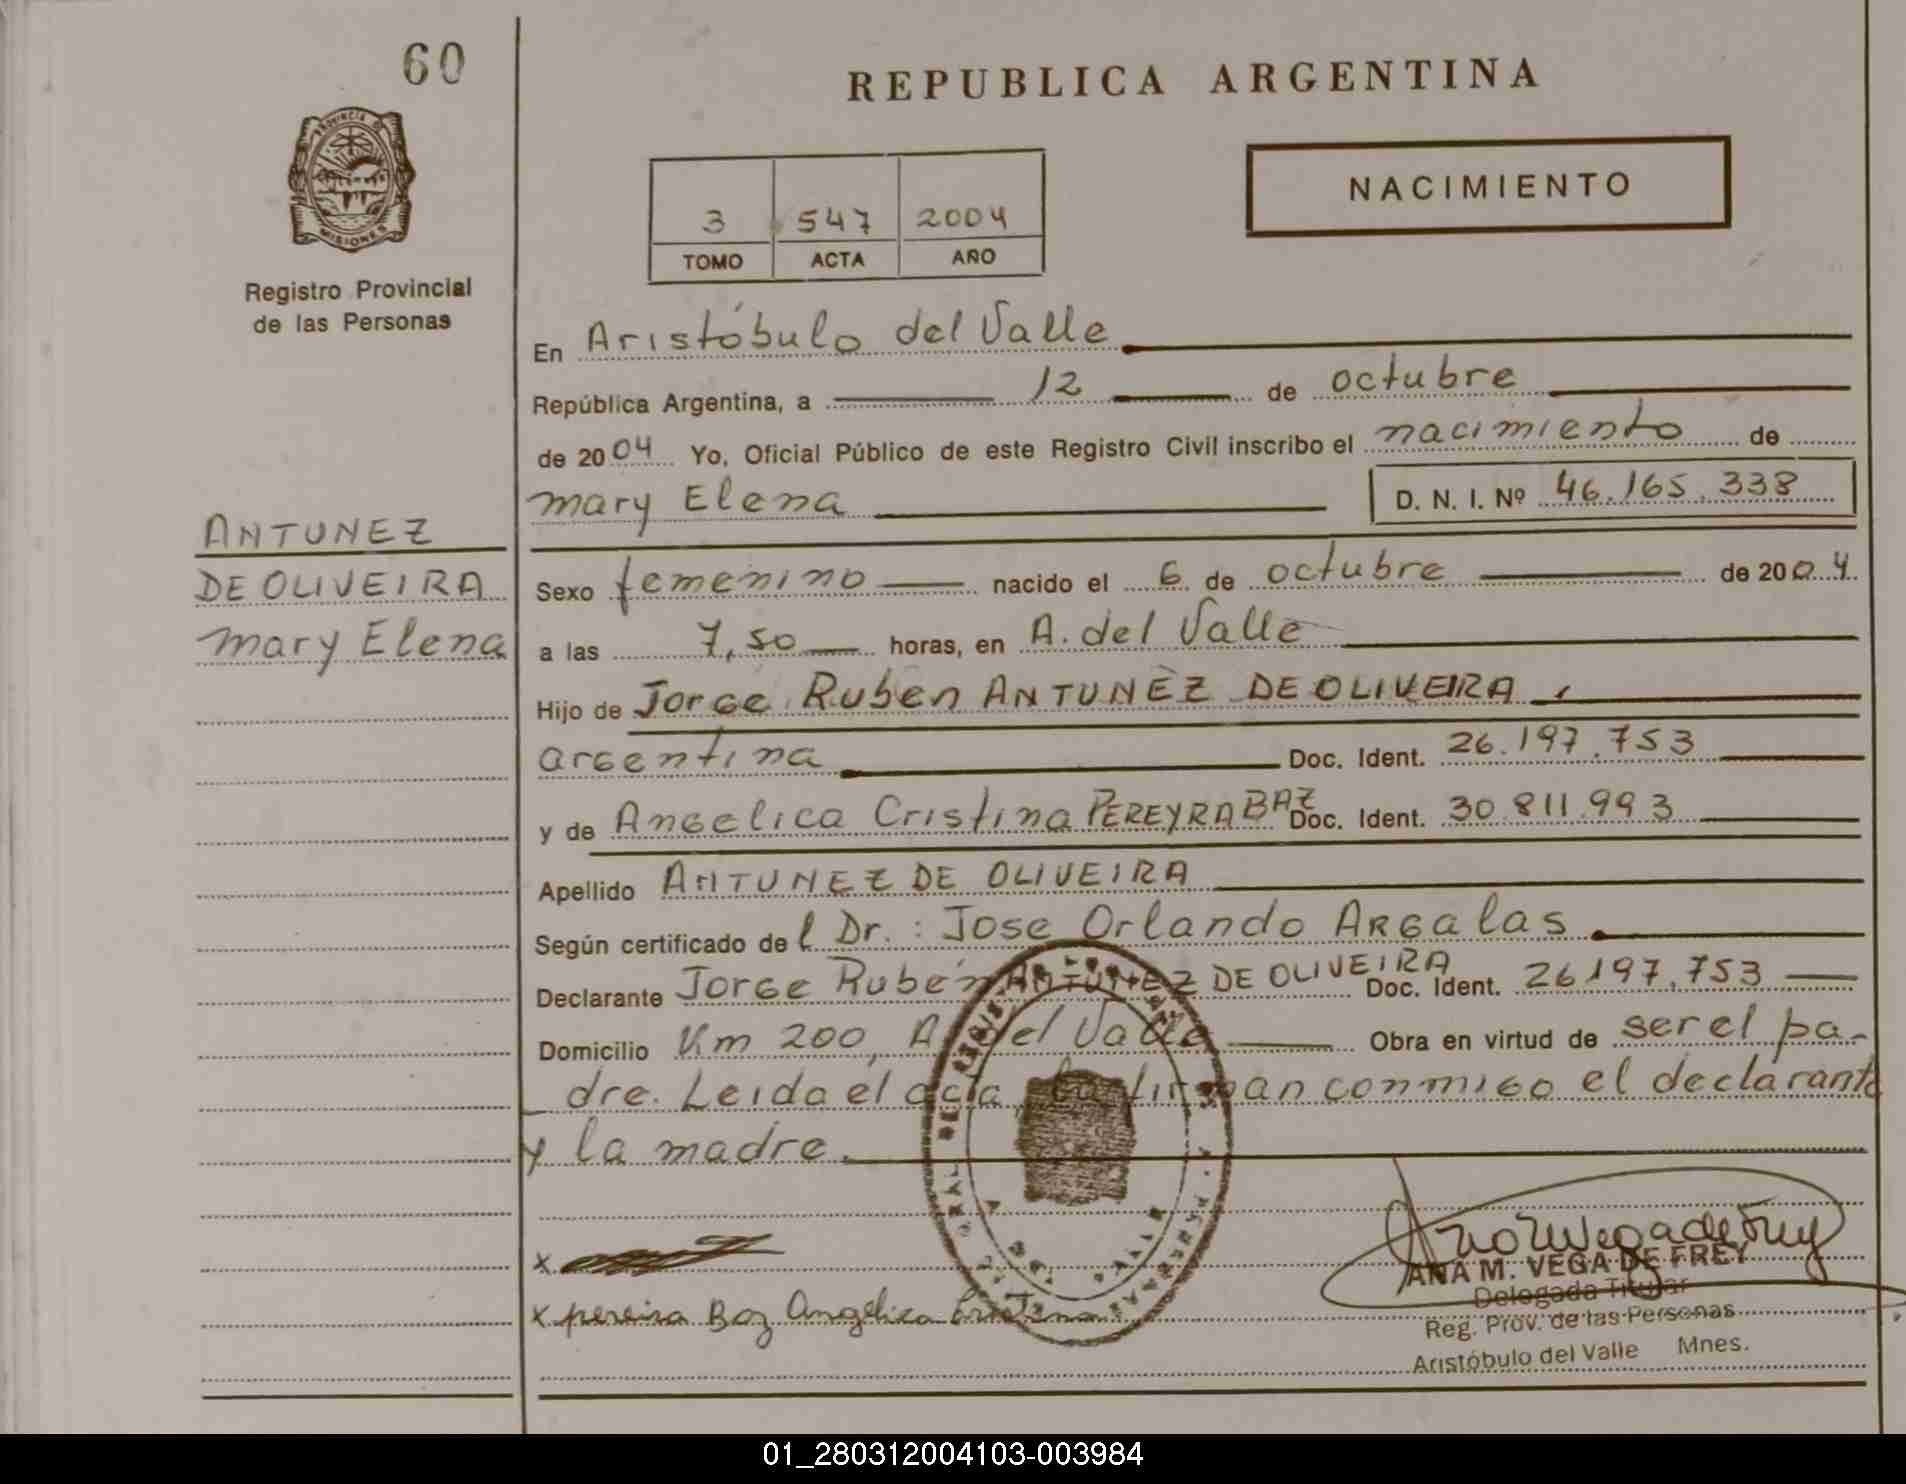 60
REPUBLICA ARGENTINA
PROVINCIA DE
MISIONES
Registro Provincial
de las Personas
NACIMIENTO
3 547 2004
TOMO ACTA AÑO
En Aristóbulo del Valle
República Argentina, a 12 de octubre
de 2004 Yo, Oficial Público de este Registro Civil inscribo el nacimiento de
mary Elena D. N. I. Nº 46.165.338
ANTUNEZ
DE OLIVEIRA
mary Elena
Sexo femenino nacido el 6 de octubre de 2004
a las 7,50 horas, en A. del Valle
Hijo de Jorge Ruben ANTUNEZ DE OLIVEIRA,
argentina Doc. Ident. 26.197.753
y de Angelica Cristina PEREYRA BAZ Doc. Ident. 30.811.993
Apellido ANTUNEZ DE OLIVEIRA
Según certificado del Dr.: Jose Orlando Argalas
Declarante Jorge Rubén ANTUNEZ DE OLIVEIRA Doc. Ident. 26197.753
Domicilio Km 200, A. del Valle Obra en virtud de ser el pa-
dre. Leida el acta, la firman conmigo el declarante
y la madre.
x
x pereira Baz Angélica Cristina
ANA M. VEGA DE FREY
Delegada Titular
Reg. Prov. de las Personas
Aristóbulo del Valle Mnes.
01_280312004103-003984